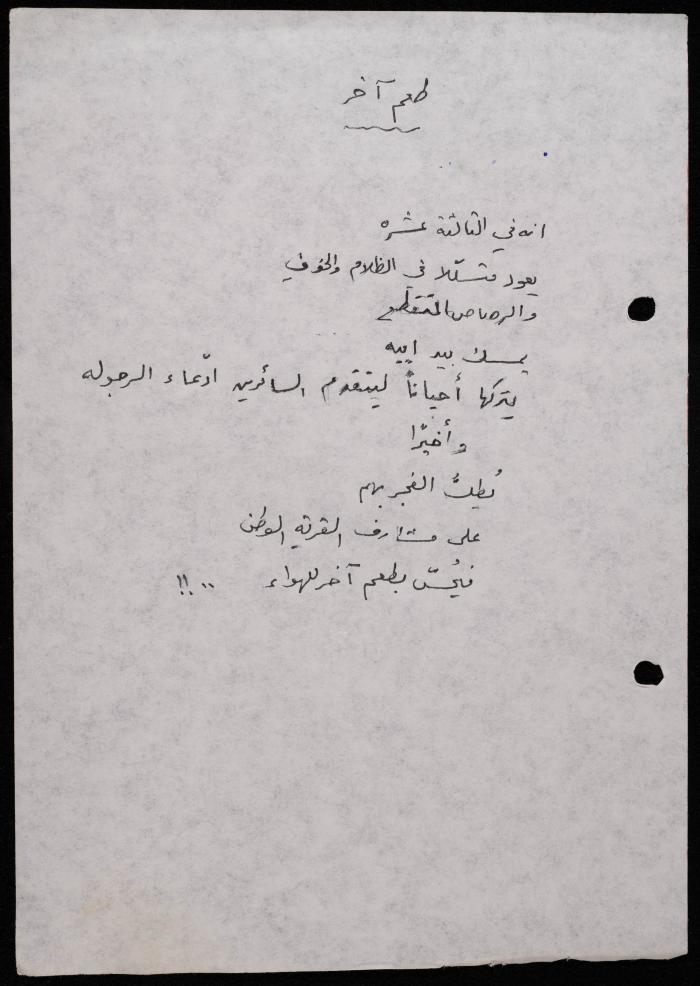 طعم آخر
انه في الثالثة عشره
يعود متسللا في الظلام والخوف
والرصاص المتقطع
يمسك بيد ابيه
يتركها أحياناً ليتقدم السائرين ادّعاء الرجوله
وأخيرًا
يُطِلُّ الفجر بهم
على مشارف القرية الوطن
فيُحسّ بطعم آخر للهواء ..!!